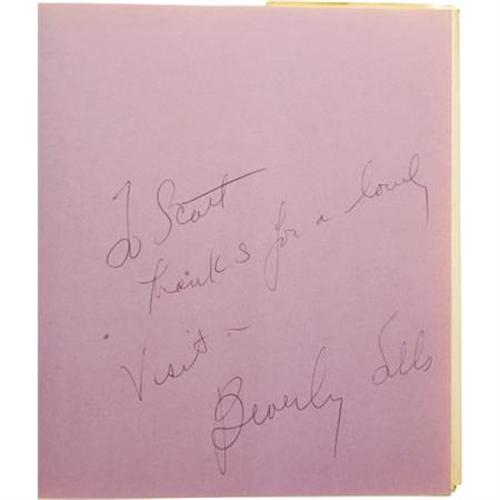 To Scott
Thanks for a lovely
Visit –
Beverly Sills